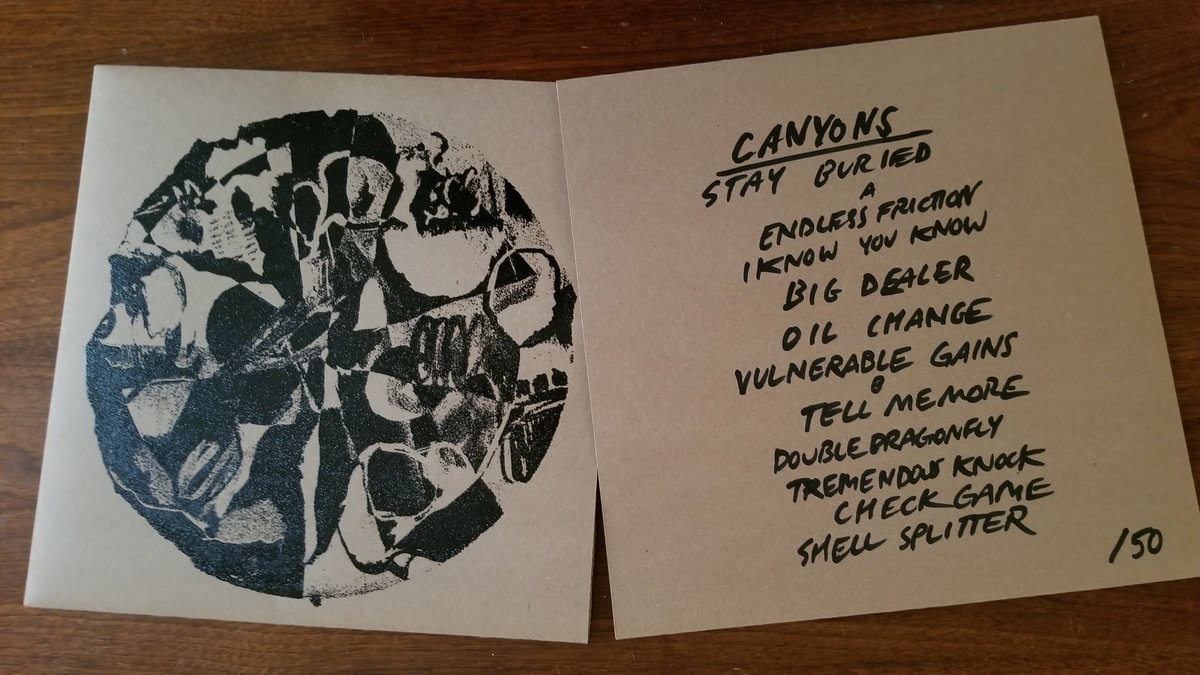 CANYONS
STAY BURIED
A
ENDLESS FRICTION
I KNOW YOU KNOW
BIG DEALER
OIL CHANGE
VULNERABLE GAINS
B
TELL ME MORE
DOUBLE DRAGONFLY
TREMENDOUS KNOCK
CHECK GAME
SHELL SPLITTER
/50